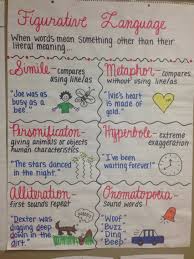 Figurative Language
When words mean something other than their
literal meaning...
Simile - compares
using like/as
"Joe was as
busy as a
bee."
Metaphor - compares
without using like/as
"Vie's heart
is made of
gold."
Personification -
giving animals or objects
human characteristics
"The stars danced
in the night."
Hyperbole -
extreme
exaggeration
"I've been
waiting forever!"
Alliteration -
first sounds repeat
"Dexter was
digging deep
down in the
dirt."
Onomatopoeia -
sound words
"Woof"
"Buzz"
"Ding"
"Beep"